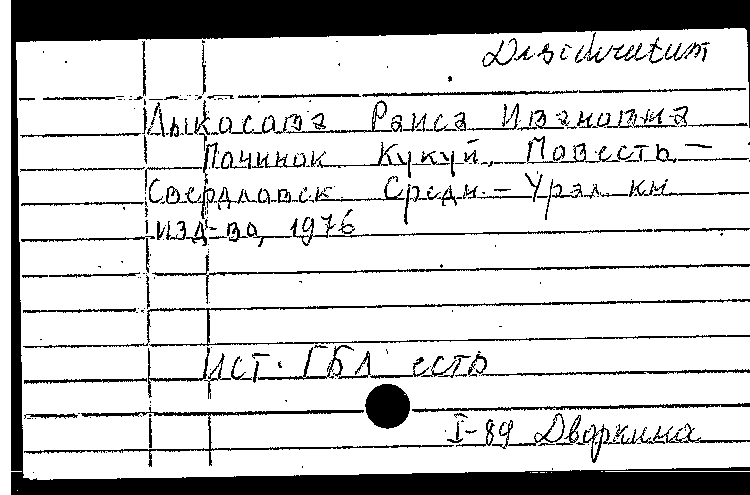 Desideratum
Лыкосова Раиса Ивановна
Починок Кукуй. Повесть. —
Свердловск. Средн. – Урал. кн.
изд-во, 1976
Ист. ГБЛ есть
I-89 Дворкина